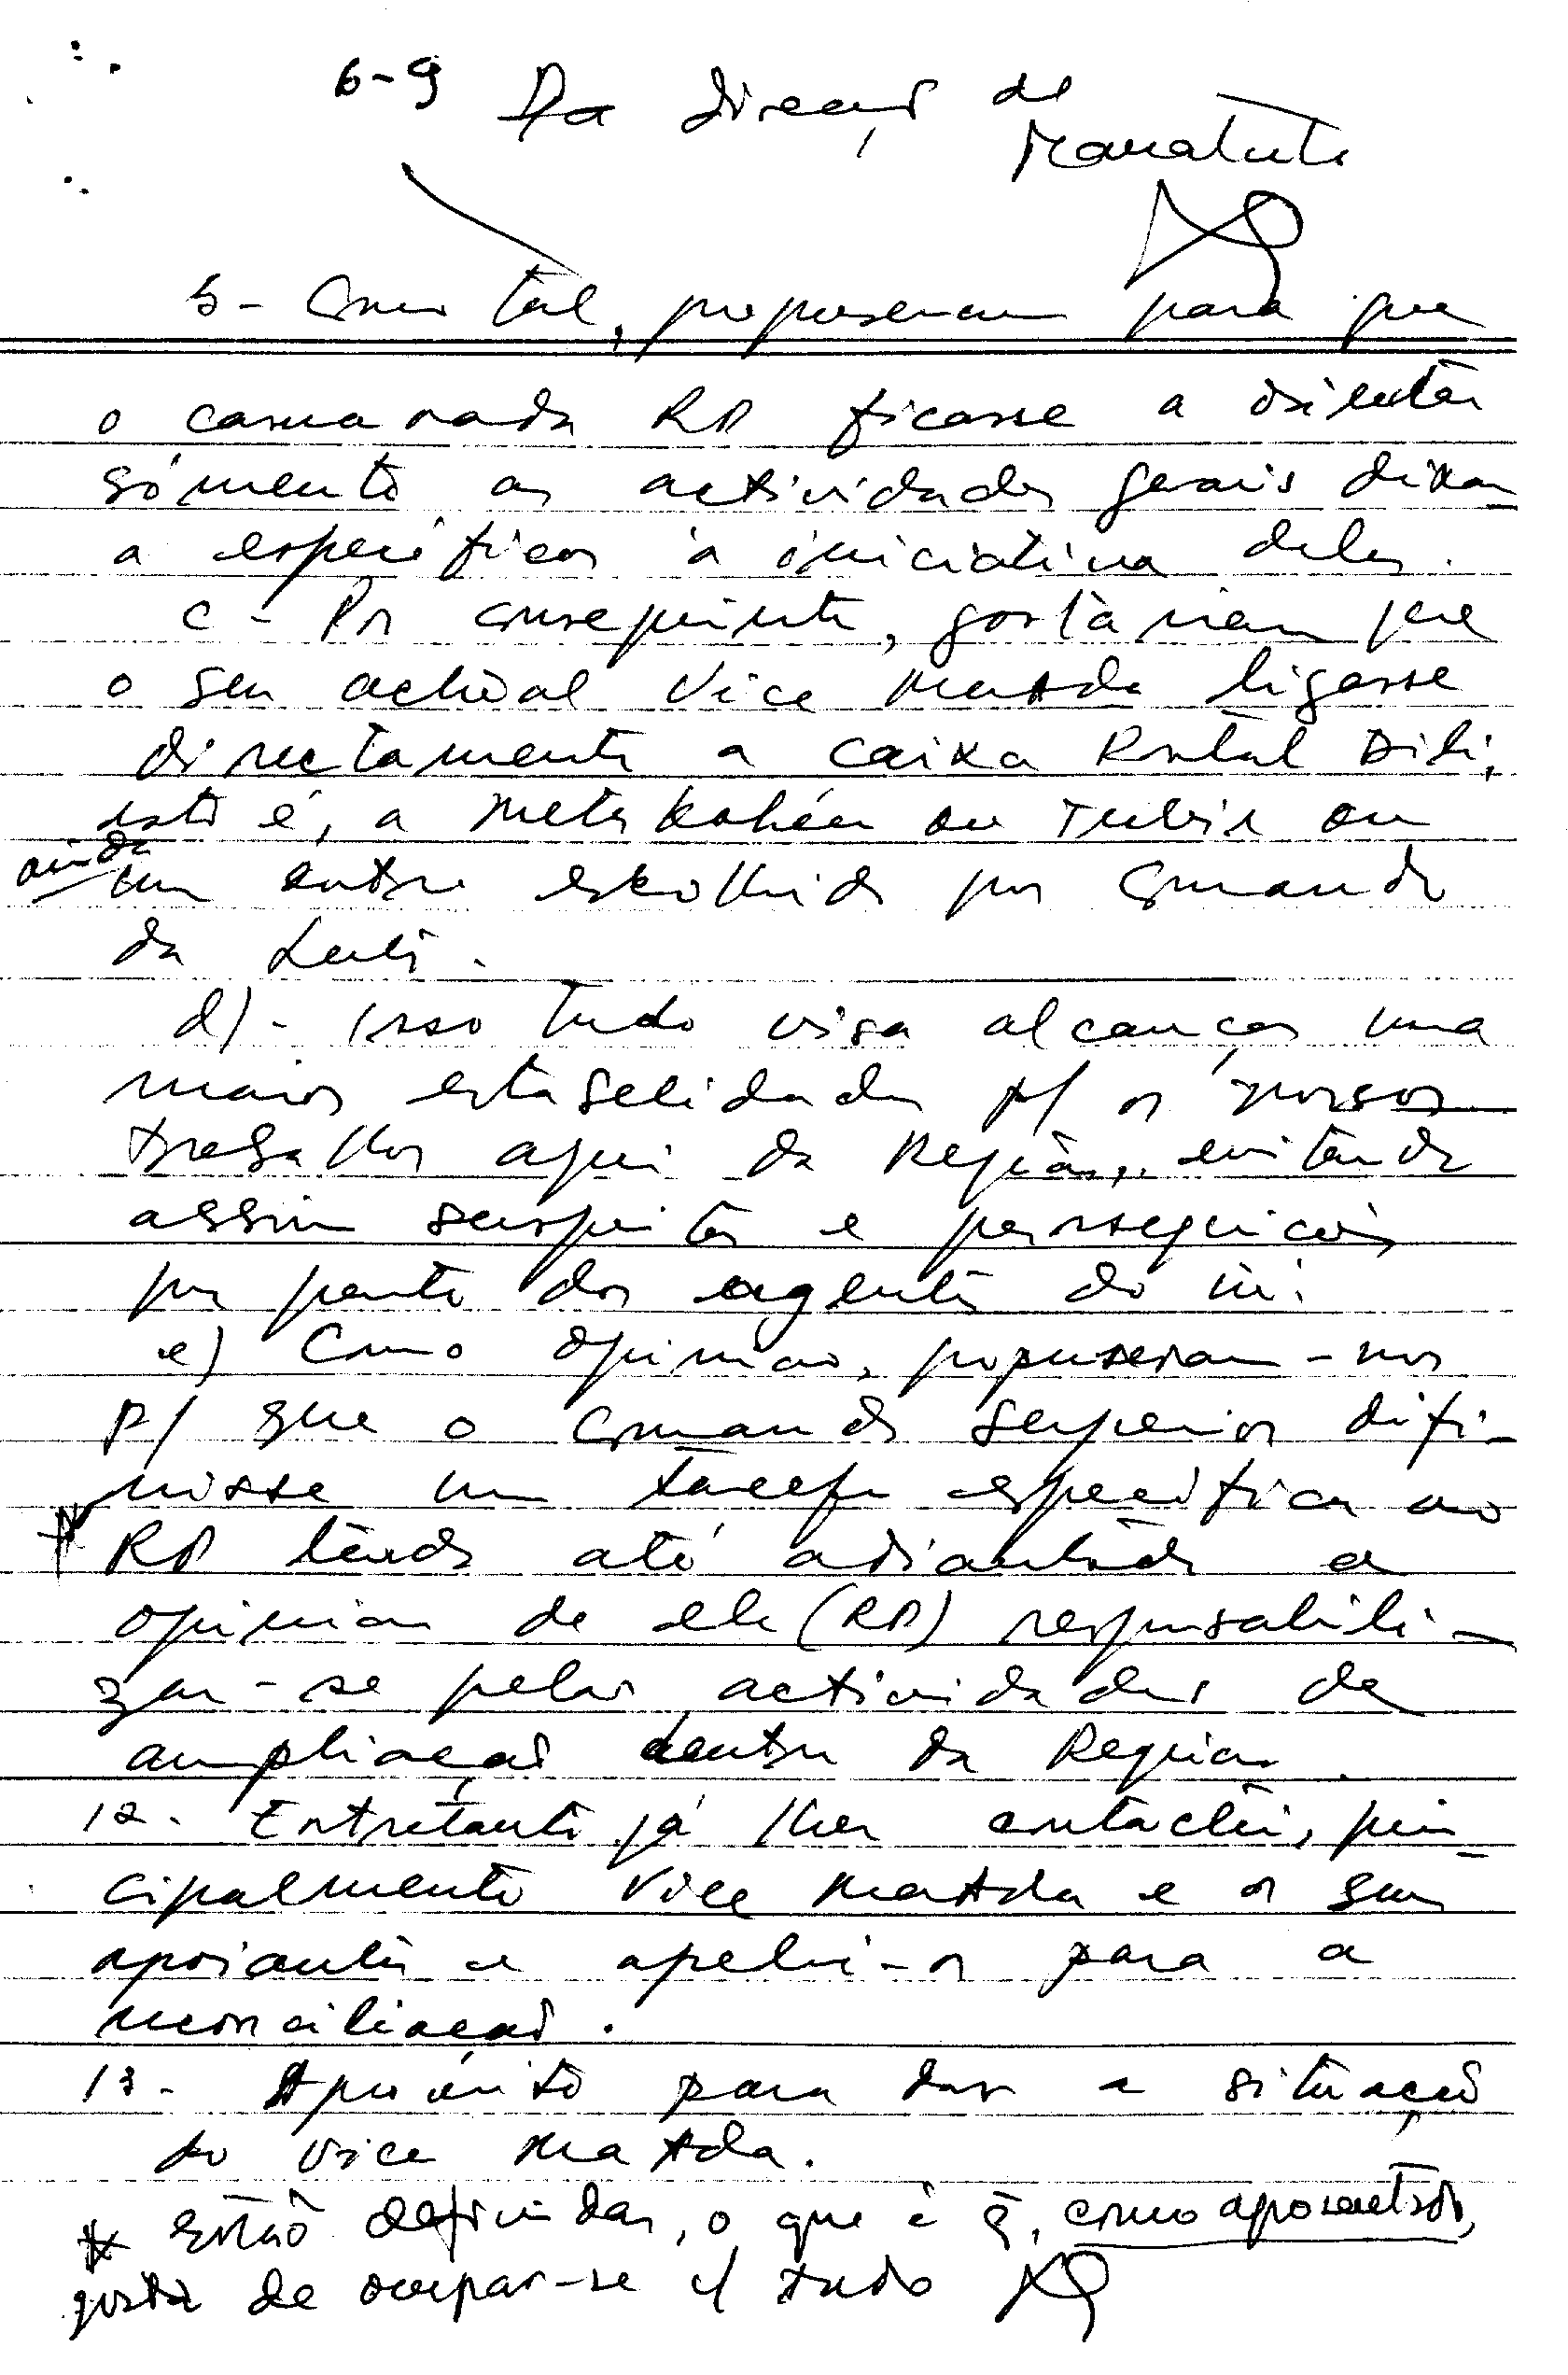 6-9 Da direcção de
Manatuto
b- Como tal, propuseram para que
o camarada RD ficasse a orientar
sómente as actividades gerais dixan
a especificas à iniciativa deles.
c - Por conseguinte, gostariam que
o seu actual Vice ligasse
directamente a caixa Postal Dili,
isto é, a ou ou
ainda um outro escolhido por Comando
da Luta.
d)- Isso tudo visa alcançar uma
maior estabelidade p/ os nossos
trabalhos aqui da Região, evitando
assim suspeitas e perseguicões
por parte dos agentes do ini.
e) Como opinião, propuseram-nos
p/ que o Comando Superior difi-
nisse um tarefa especifica ao
* RD tendo até adiantado a
opinião de ele (RD) responsabili-
zar-se pelas actividades de
ampliação dentro da Região.
12. Entretanto já lhes contactei, prin-
cipalmente Vice e os seus
apoiantes e apelei-os para a
reconciliação.
13. Aproveito para dar a situação
do Vice
* Estão definidas, o que é q. como aposentado,
gosta de ocupar-se c/ tudo